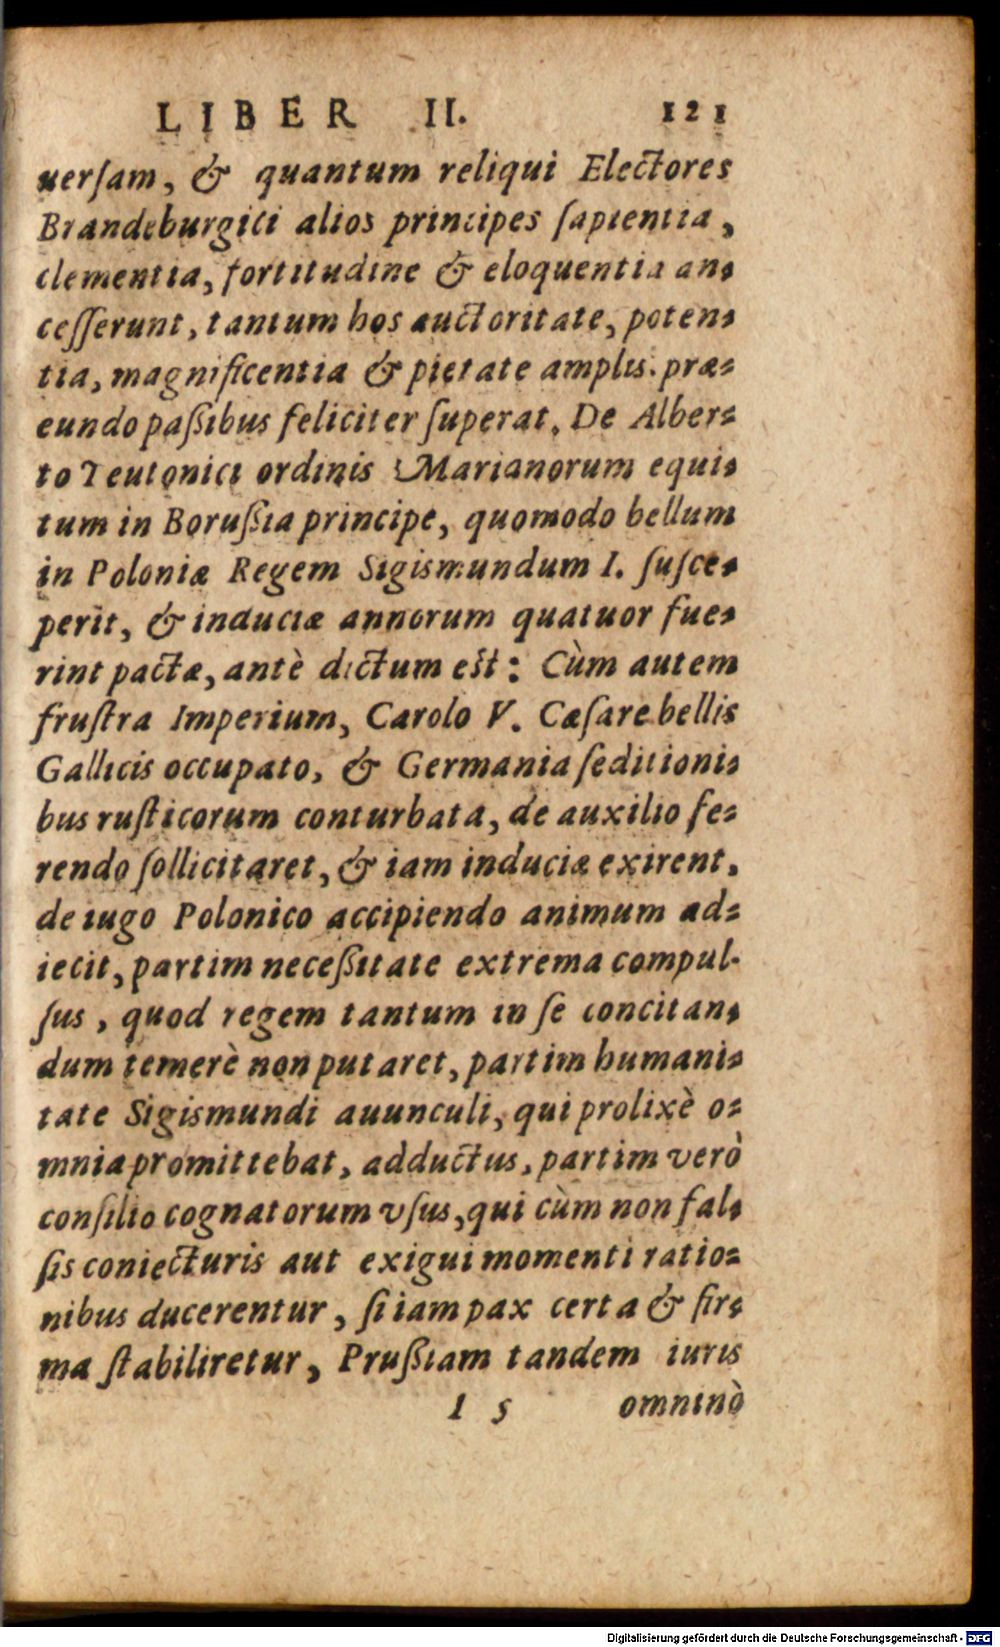 LIBER II. 121
uerſam, & quantum reliqui Electores
Brandeburgici alios principes ſapientia,
clementia, fortitudine & eloquentia an-
ceſſerunt, tantum hos auctoritate, poten-
tia, magnificentia & pietate amplis. præ-
eundo paßibus feliciter ſuperat. De Alber-
to Teutonici ordinis Marianorum equi-
tum in Borußia principe, quomodo bellum
in Poloniæ Regem Sigismundum I. ſuſce-
perit, & induciæ annorum quatuor fue-
rint pactæ, antè dictum eſt: Cùm autem
fruſtra Imperium, Carolo V. Cæſare bellis
Gallicis occupato, & Germania ſeditioni-
bus ruſticorum conturbata, de auxilio fe-
rendo ſollicitaret, & iam induciæ exirent,
de iugo Polonico accipiendo animum ad-
iecit, partim neceßitate extrema compul-
ſus, quod regem tantum in ſe concitan-
dum temerè non putaret, partim humani-
tate Sigismundi auunculi, qui prolixè o-
mnia promittebat, adductus, partim verò
conſilio cognatorum vſus, qui cùm non fal-
ſis coniecturis aut exigui momenti ratio-
nibus ducerentur, ſi iam pax certa & fir-
ma ſtabiliretur, Prußiam tandem iuris
I 5 omninò
Digitalisierung gefördert durch die Deutsche Forschungsgemeinschaft - DFG